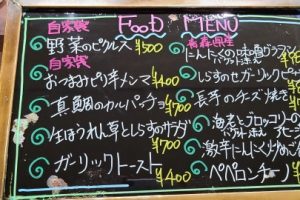 FOOD MENU
自家製
野菜のピクルス ¥500
自家製
おつまみピリ辛メンマ ¥400
真鯛のカルパッチョ ¥700
生ほうれん草としらすのサラダ ¥700
ガーリックトースト ¥400
青森県産
にんにくの味噌グラタン
バゲット
しらすのガーリックピ
長芋のチーズ焼き
海老とブロッコリーの
激辛にんにく炒め
ペペロンチーノ